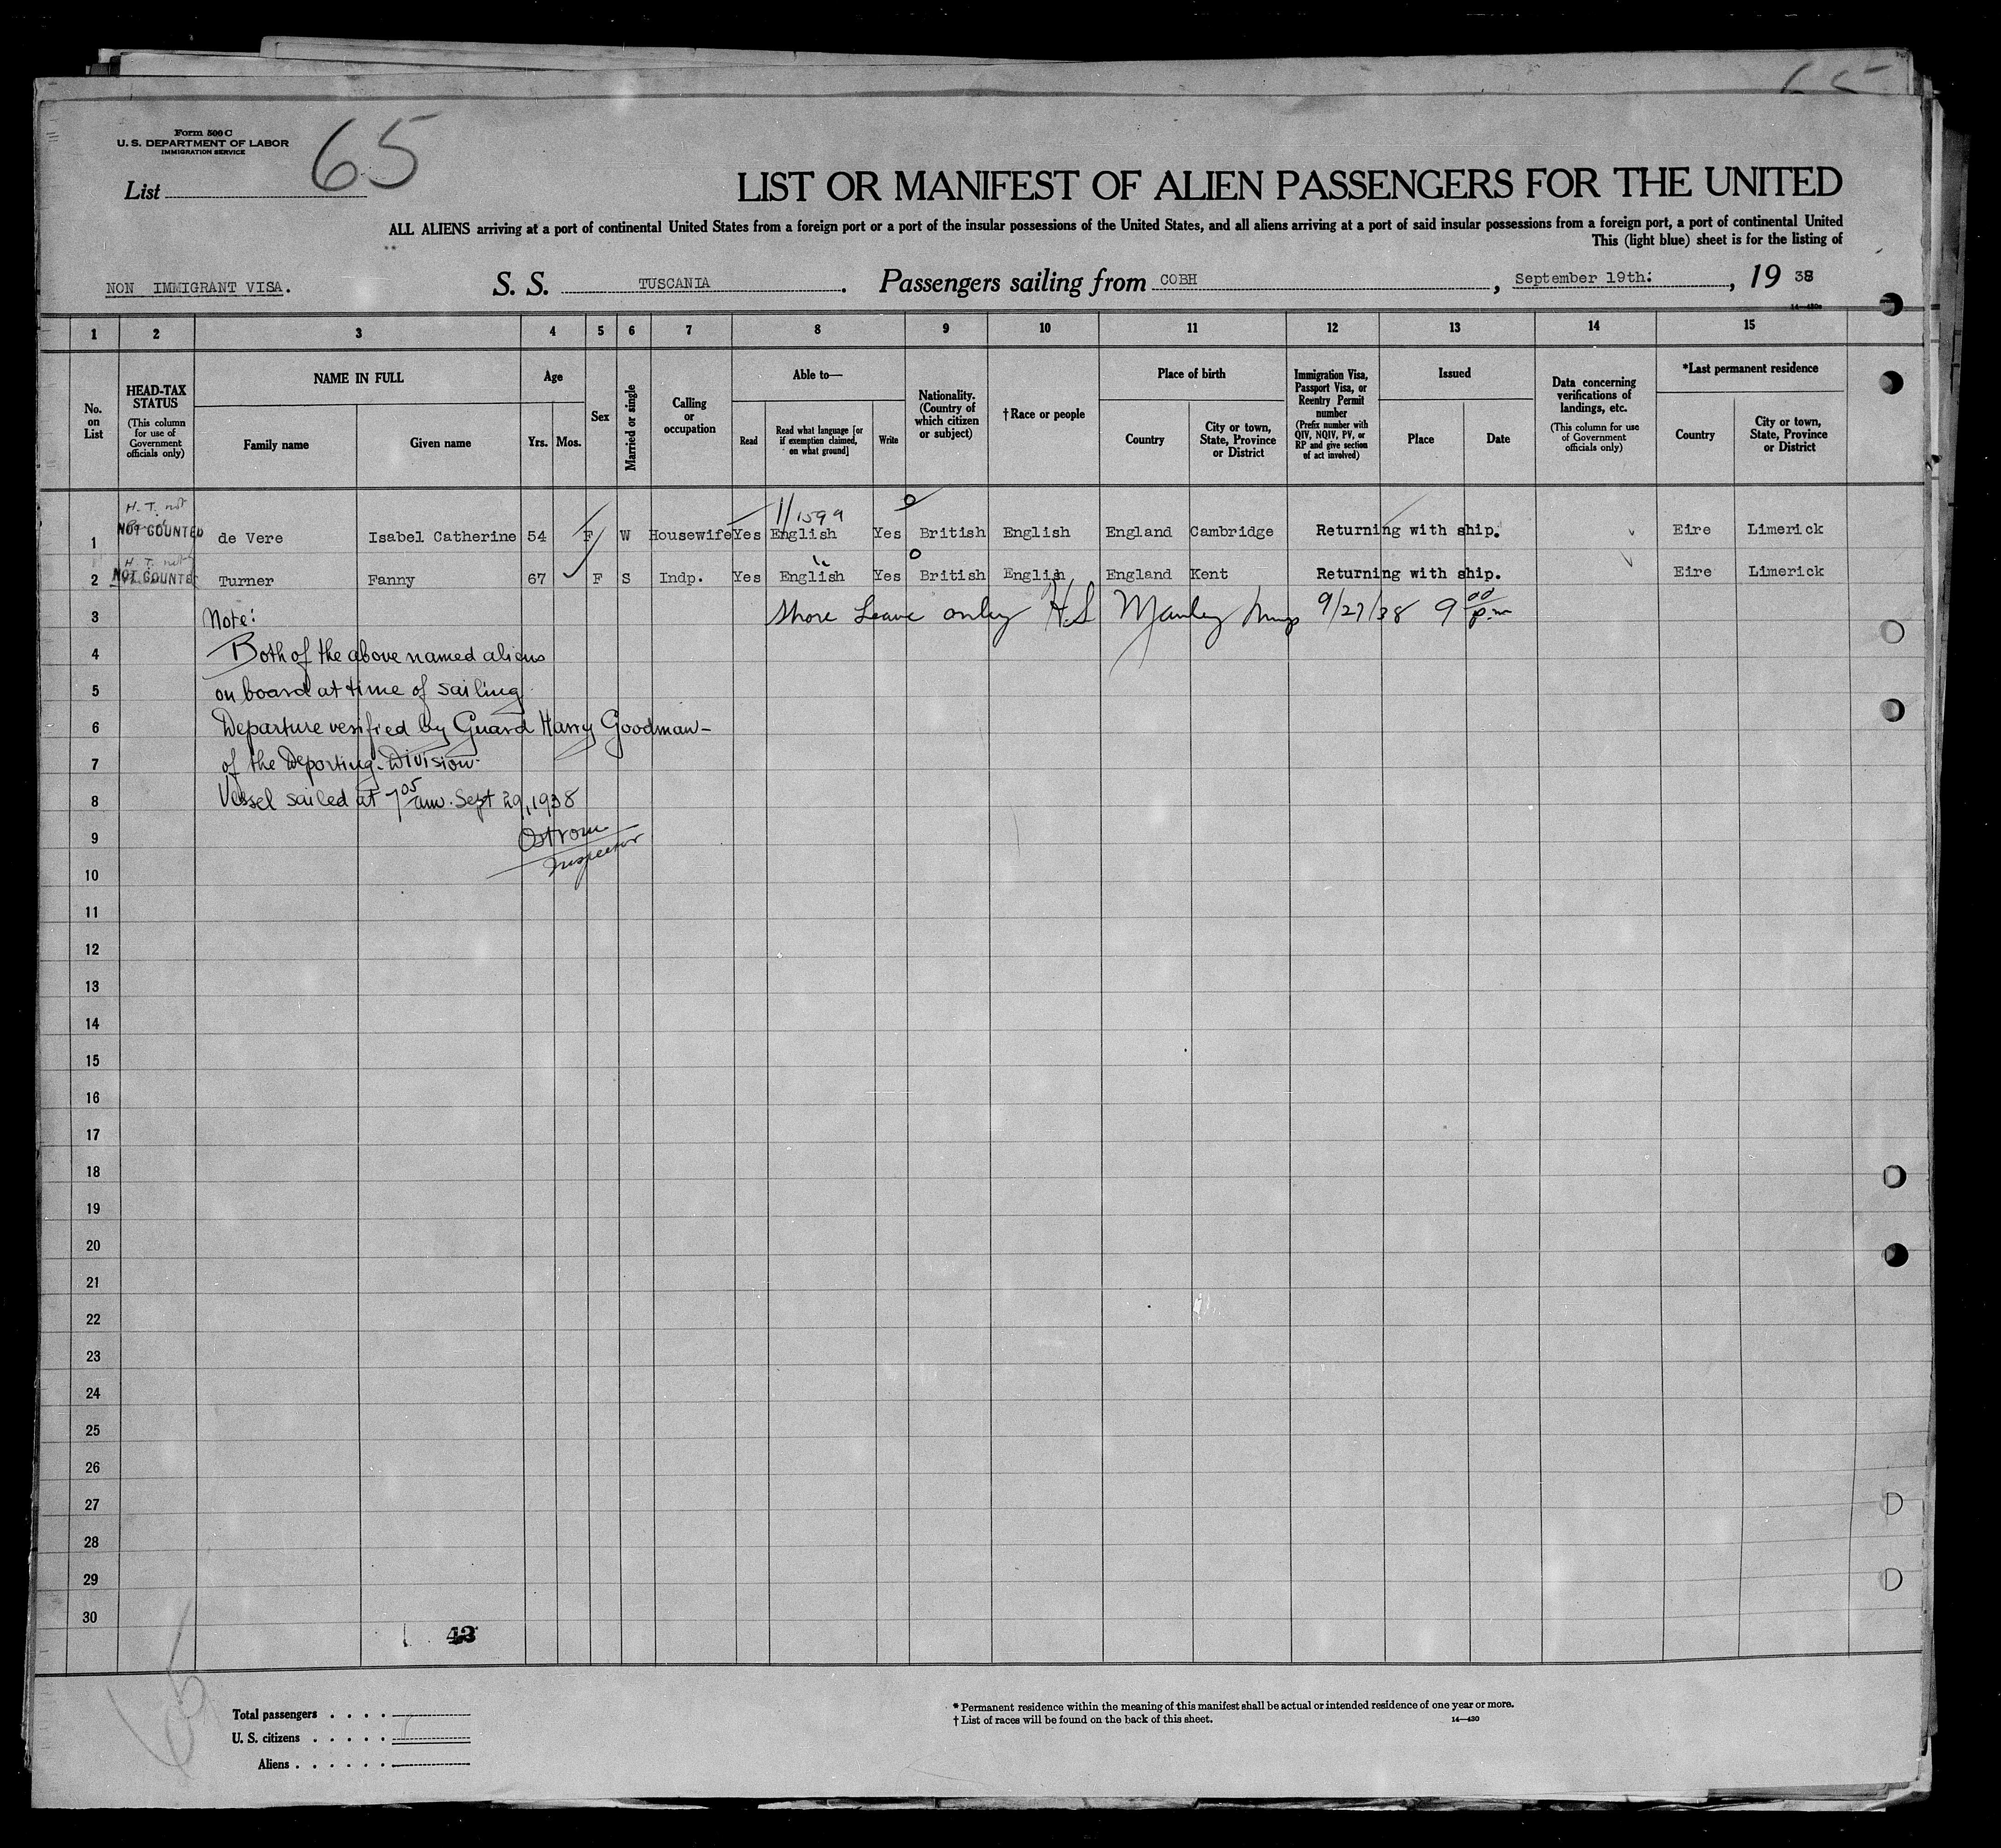 65
Form 500 C
U. S. DEPARTMENT OF LABOR
IMMIGRATION SERVICE
List
65
LIST OR MANIFEST OF ALIEN PASSENGERS FOR THE UNITED
ALL ALIENS arriving at a port of continental United States from a foreign port or a port of the insular possessions of the United States, and all aliens arriving at a port of said insular possessions from a foreign port, a port of continental United
This (light blue) sheet is for the listing of
NON IMMIGRANT VISA. S. S. TUSCANIA. Passengers sailing from COBH, September 19th: , 19 38
1 2 3 4 5 6 7 8 9 10 11 12 13 14 15
No. on List
HEAD-TAX STATUS (This column for use of Government officials only)
NAME IN FULL
Family name
Given name
Age
Yrs. Mos.
Sex
Married or single
Calling or occupation
Able to—
Read
Read what language [or if exemption claimed, on what ground]
Write
Nationality. (Country of which citizen or subject)
†Race or people
Place of birth
Country
City or town, State, Province or District
Immigration Visa, Passport Visa, or Reentry Permit number (Prefix number with QIV, NQIV, PV, or RP and give section of act involved)
Issued
Place
Date
Data concerning verifications of landings, etc. (This column for use of Government officials only)
*Last permanent residence
Country
City or town, State, Province or District
H. T. not
11/1599
1 NOT COUNTED de Vere Isabel Catherine 54 F W Housewife Yes English Yes British English England Cambridge Returning with ship. Eire Limerick
H. T. not
2 NOT COUNTED Turner Fanny 67 F S Indp. Yes English Yes British English England Kent Returning with ship. Eire Limerick
3 Note: Shore Leave only H.S Manley 9/27/38 9 00 p.m
4 Both of the above named aliens
5 on board at time of sailing
6 Departure verified by Guard Harry Goodman-
7 of the Deporting Division.
8 Vessel sailed at 7 05 am. Sept 29, 1938
9 Ostrom
Inspector
10
11
12
13
14
15
16
17
18
19
20
21
22
23
24
25
26
27
28
29
30
43
65
Total passengers . . . .
U. S. citizens . . . . .
Aliens . . . . . .
* Permanent residence within the meaning of this manifest shall be actual or intended residence of one year or more.
† List of races will be found on the back of this sheet. 14—430